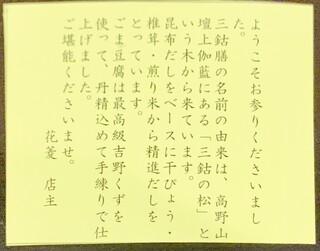 ようこそお参りくださいまし
た。
三鈷膳の名前の由来は、高野山
壇上伽藍にある「三鈷の松」と
いう木から来ています。
昆布だしをベースに干ぴょう・
椎茸・煎り米から精進だしを
とっています。
ごま豆腐は最高級吉野くずを
使って、丹精込めて手練りで仕
上げました。
ご堪能くださいませ。
花菱　店主